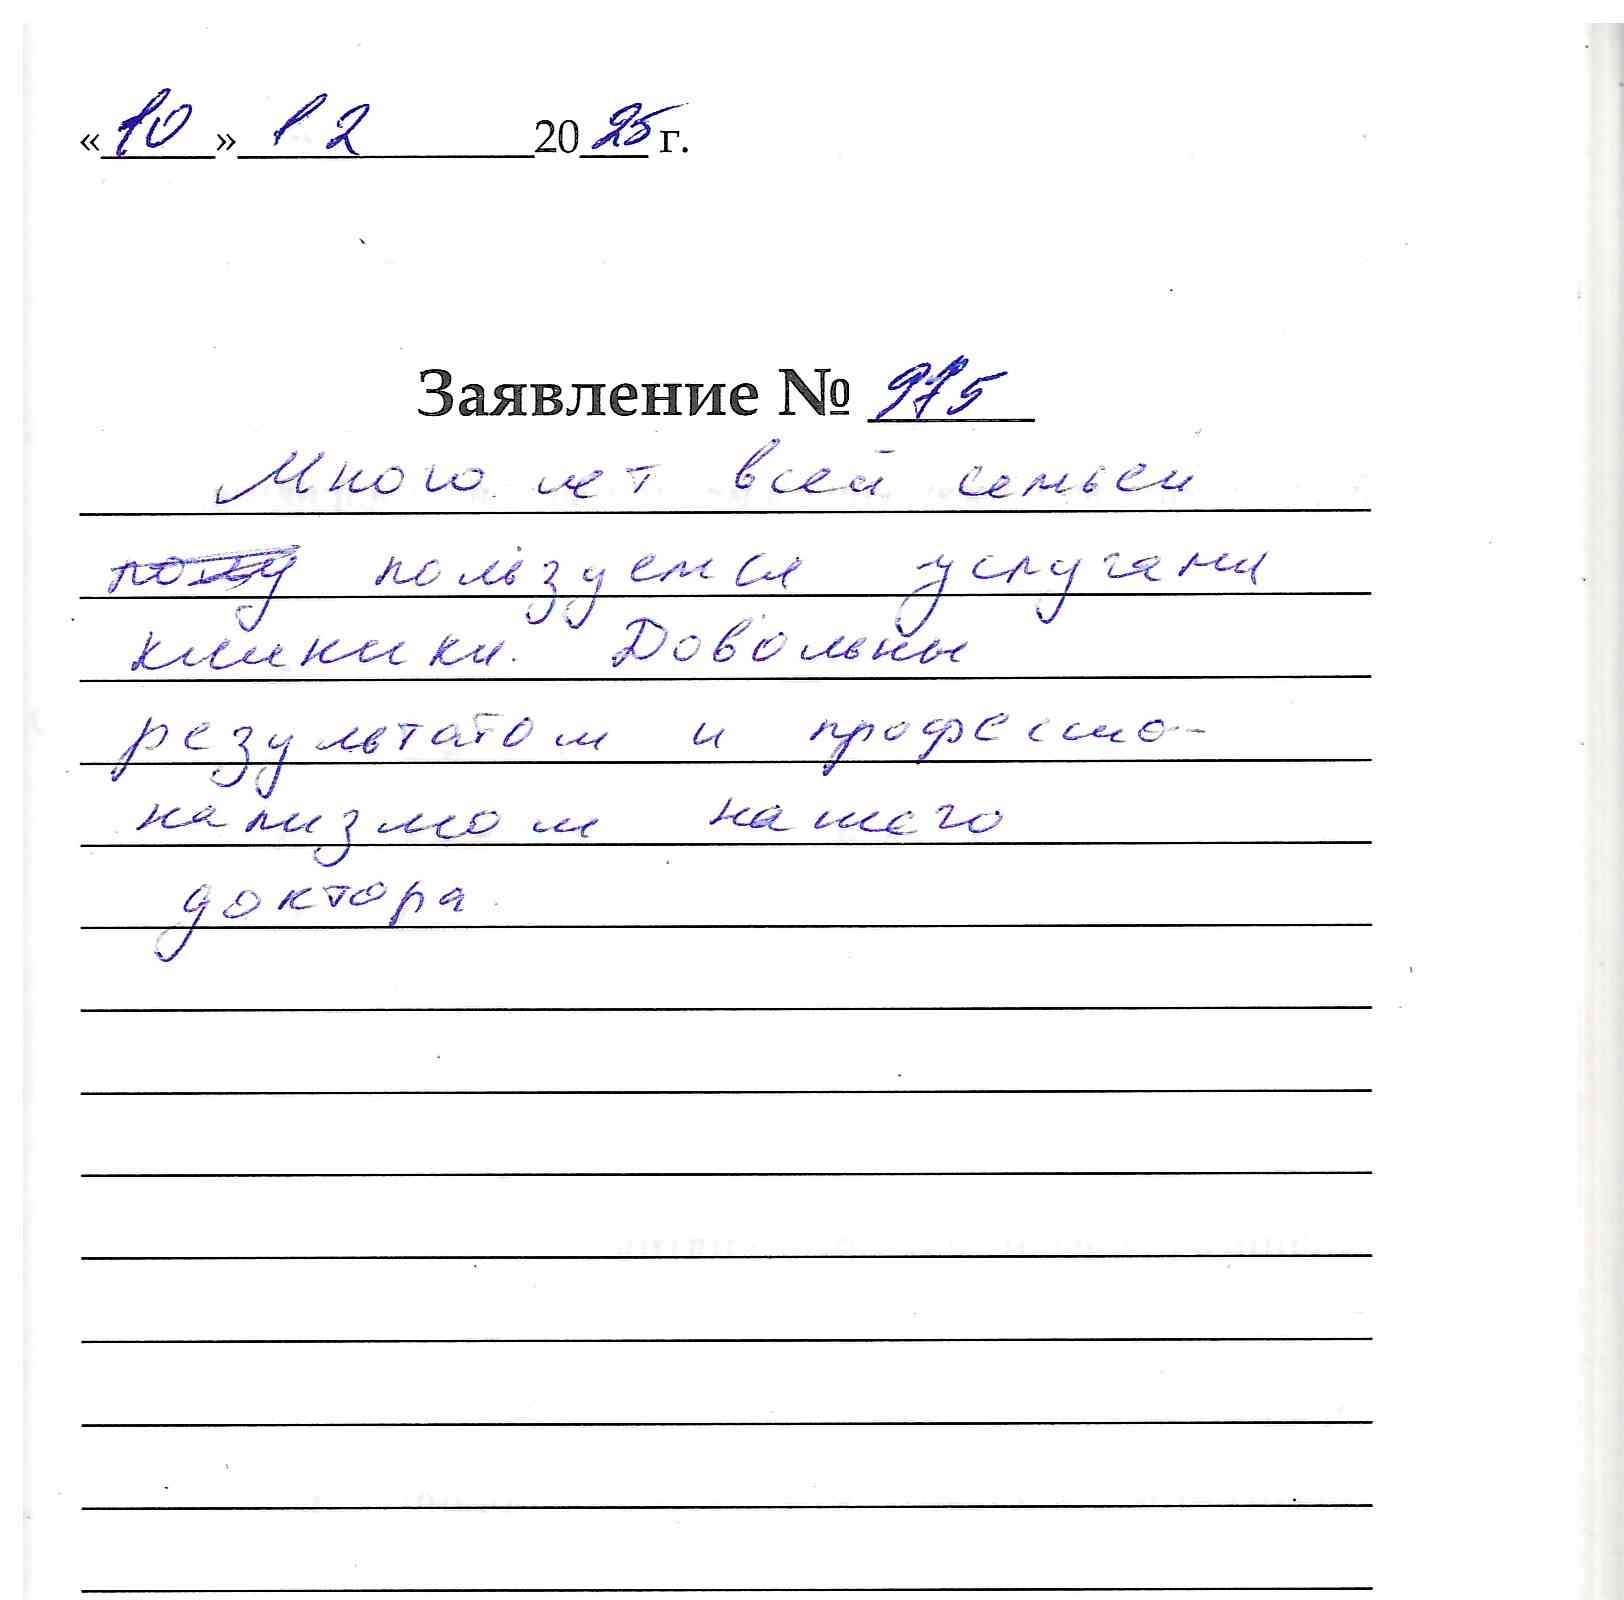 «10» 12 2025 г.
Заявление № 975
Много лет всей семьеи
пользуемся услугами
клиники. Довольны
результатом и профессио-
нализмом нашего
доктора.